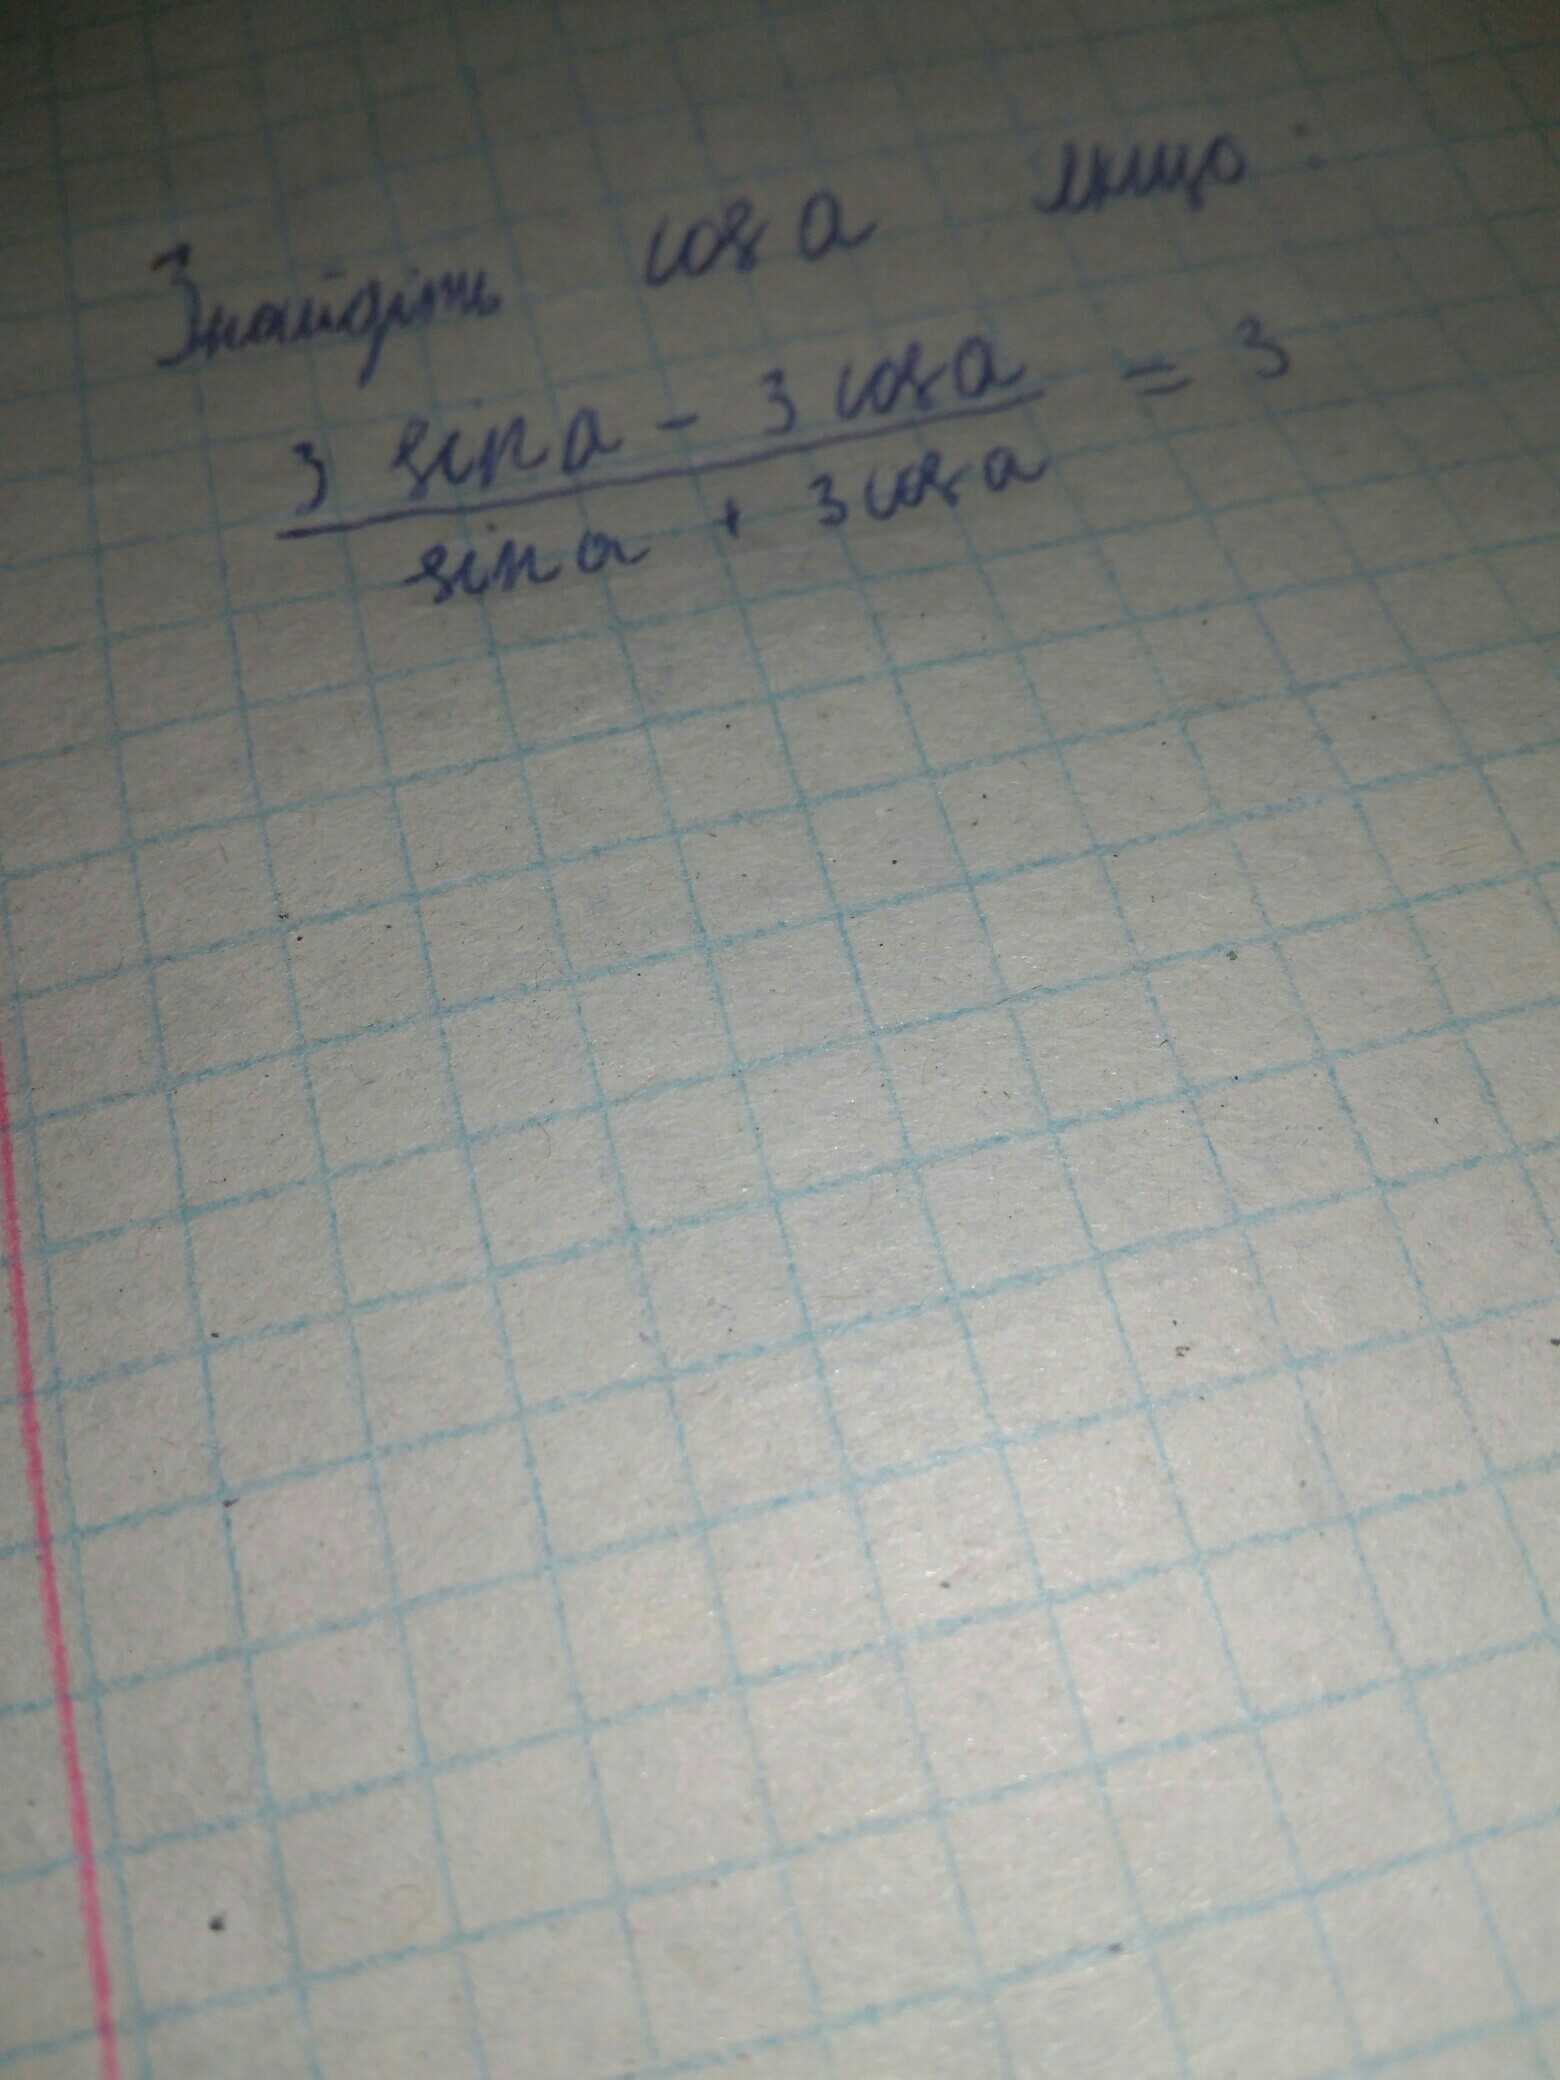 Знайдіть cos a якщо:
3 sin a - 3 cos a = 3
sin a + 3 cos a